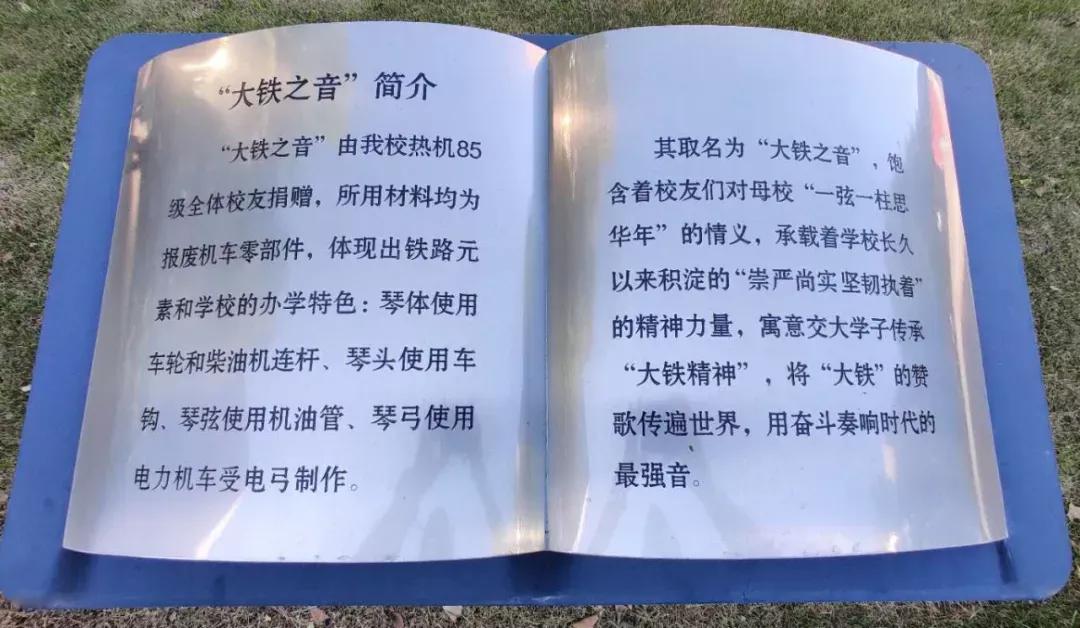 “大铁之音”简介
“大铁之音”由我校热机85
级全体校友捐赠，所用材料均为
报废机车零部件，体现出铁路元
素和学校的办学特色：琴体使用
车轮和柴油机连杆、琴头使用车
钩、琴弦使用机油管、琴弓使用
电力机车受电弓制作。
其取名为“大铁之音”，饱
含着校友们对母校“一弦一柱思
华年”的情义，承载着学校长久
以来积淀的“崇严尚实坚韧执着”
的精神力量，寓意交大学子传承
“大铁精神”，将“大铁”的赞
歌传遍世界，用奋斗奏响时代的
最强音。